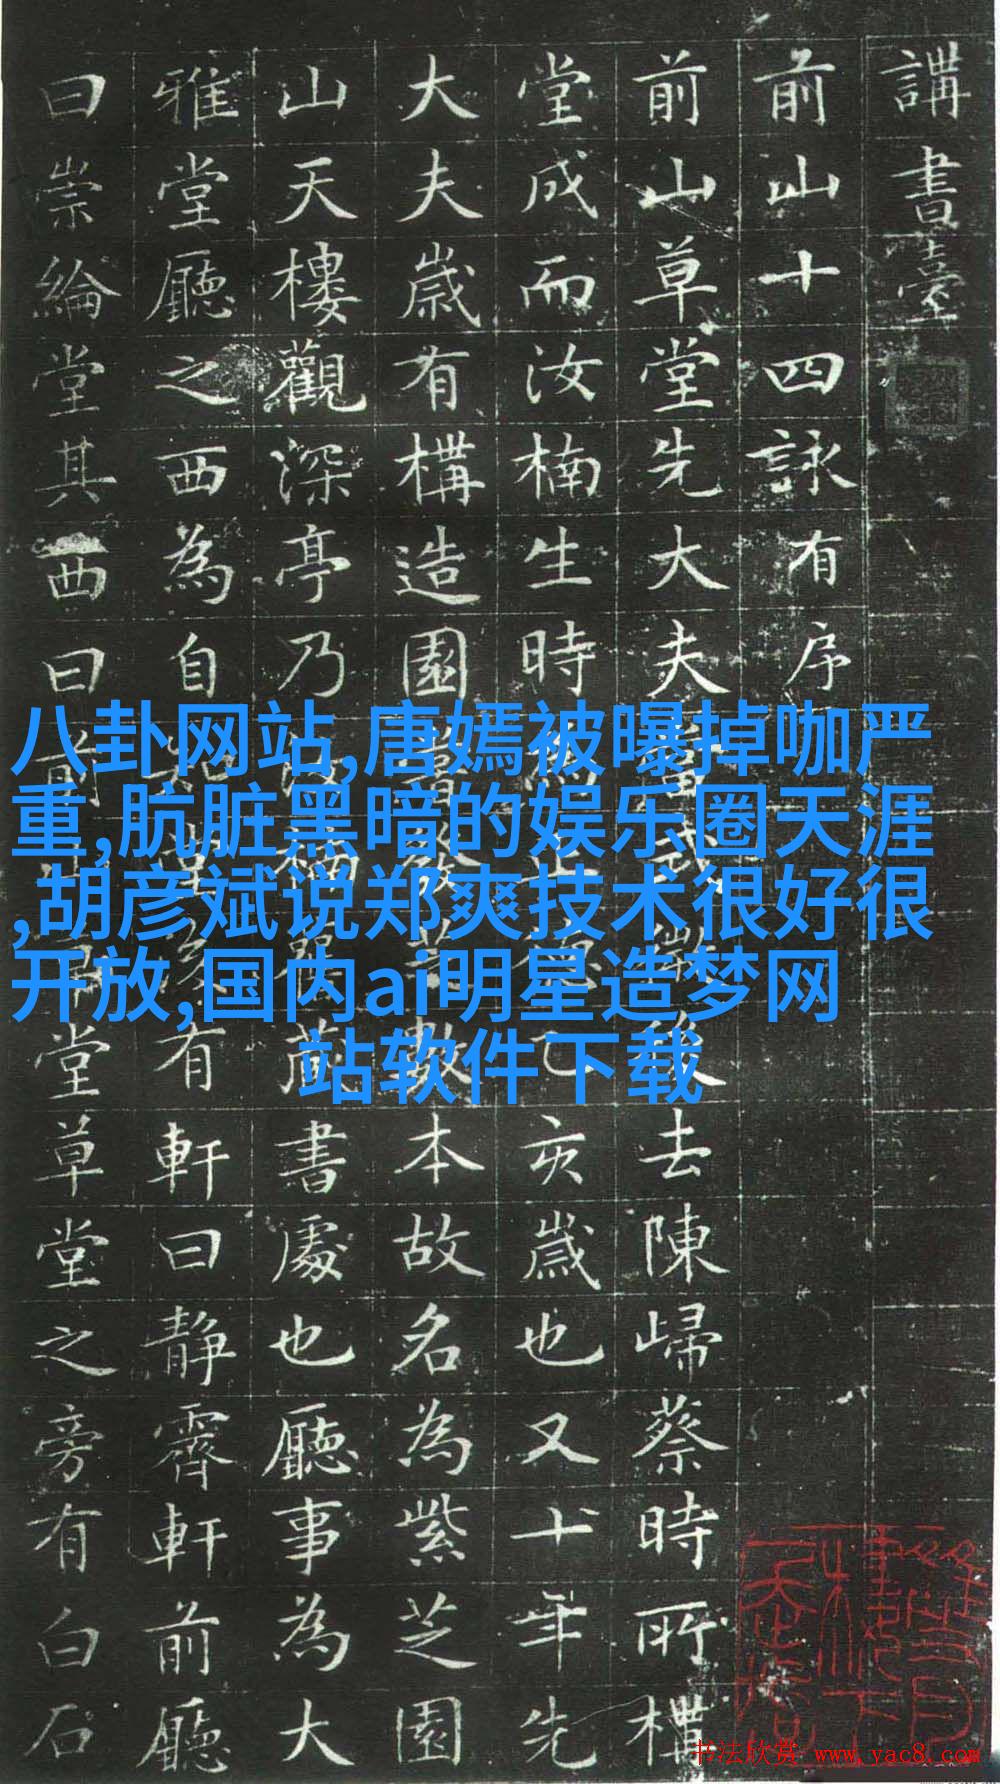 講書臺
前山十四詠有序
前山草堂先大夫去陳歸蔡時所構
堂成而汝楠生時為正德乙亥歲也又十年先
大夫歲有構造園本故名為紫芝園
山天樓觀深亭乃藏書處也廳事為大
雅堂廳之西為自有軒曰靜霽軒前廳
曰崇綸堂其西曰前山堂草堂之旁有白石
八卦网站,唐嫣被曝掉咖严
重,肮脏黑暗的娱乐圈天涯
,胡彦斌说郑爽技术很好很
开放,国内ai明星造梦网
站软件下载
书法欣赏 www.yac8.com